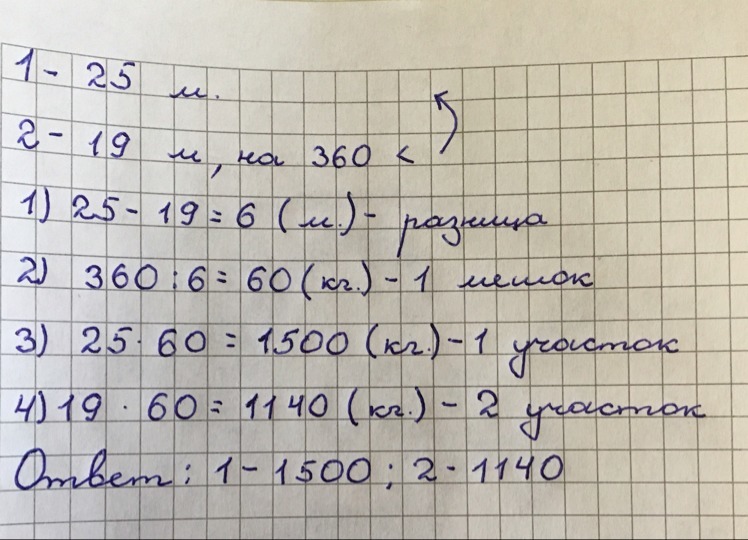 1 - 25 м.
2 - 19 м, на 360 <
1) 25 - 19 = 6 (м.) - разница
2) 360 : 6 = 60 (кг.) - 1 мешок
3) 25 · 60 = 1500 (кг.) - 1 участок
4) 19 · 60 = 1140 (кг.) - 2 участок
Ответ : 1 - 1500 ; 2 - 1140